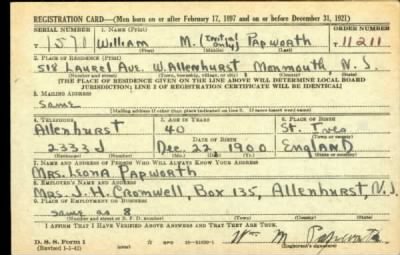 REGISTRATION CARD—(Men born on or after February 17, 1897 and on or before December 31, 1921)
SERIAL NUMBER 1. NAME (Print) ORDER NUMBER
T 1571 William M. (Initial only) Papworth T 11211
(First) (Middle) (Last)
2. PLACE OF RESIDENCE (Print)
518 Laurel Ave. W. Allenhurst Monmouth N.J.
(Number and street) (Town, township, village, or city) (County) (State)
[THE PLACE OF RESIDENCE GIVEN ON THE LINE ABOVE WILL DETERMINE LOCAL BOARD
JURISDICTION; LINE 2 OF REGISTRATION CERTIFICATE WILL BE IDENTICAL]
3. MAILING ADDRESS
Same
[Mailing address if other than place indicated on line 2. If same insert word same]
4. TELEPHONE 5. AGE IN YEARS 6. PLACE OF BIRTH
Allenhurst 40 St. Ives
DATE OF BIRTH (Town or county)
2333 J Dec. 22 1900 England
(Exchange) (Number) (Mo.) (Day) (Yr.) (State or country)
7. NAME AND ADDRESS OF PERSON WHO WILL ALWAYS KNOW YOUR ADDRESS
Mrs. Leona Papworth
8. EMPLOYER'S NAME AND ADDRESS
Mrs. J. H. Cromwell, Box 135, Allenhurst, N.J.
9. PLACE OF EMPLOYMENT OR BUSINESS
same as 8
(Number and street or R. F. D. number) (Town) (County) (State)
I AFFIRM THAT I HAVE VERIFIED ABOVE ANSWERS AND THAT THEY ARE TRUE.
D. S. S. Form 1
(Revised 1-1-42) (over) Wm. M. Papworth
(Registrant's signature)